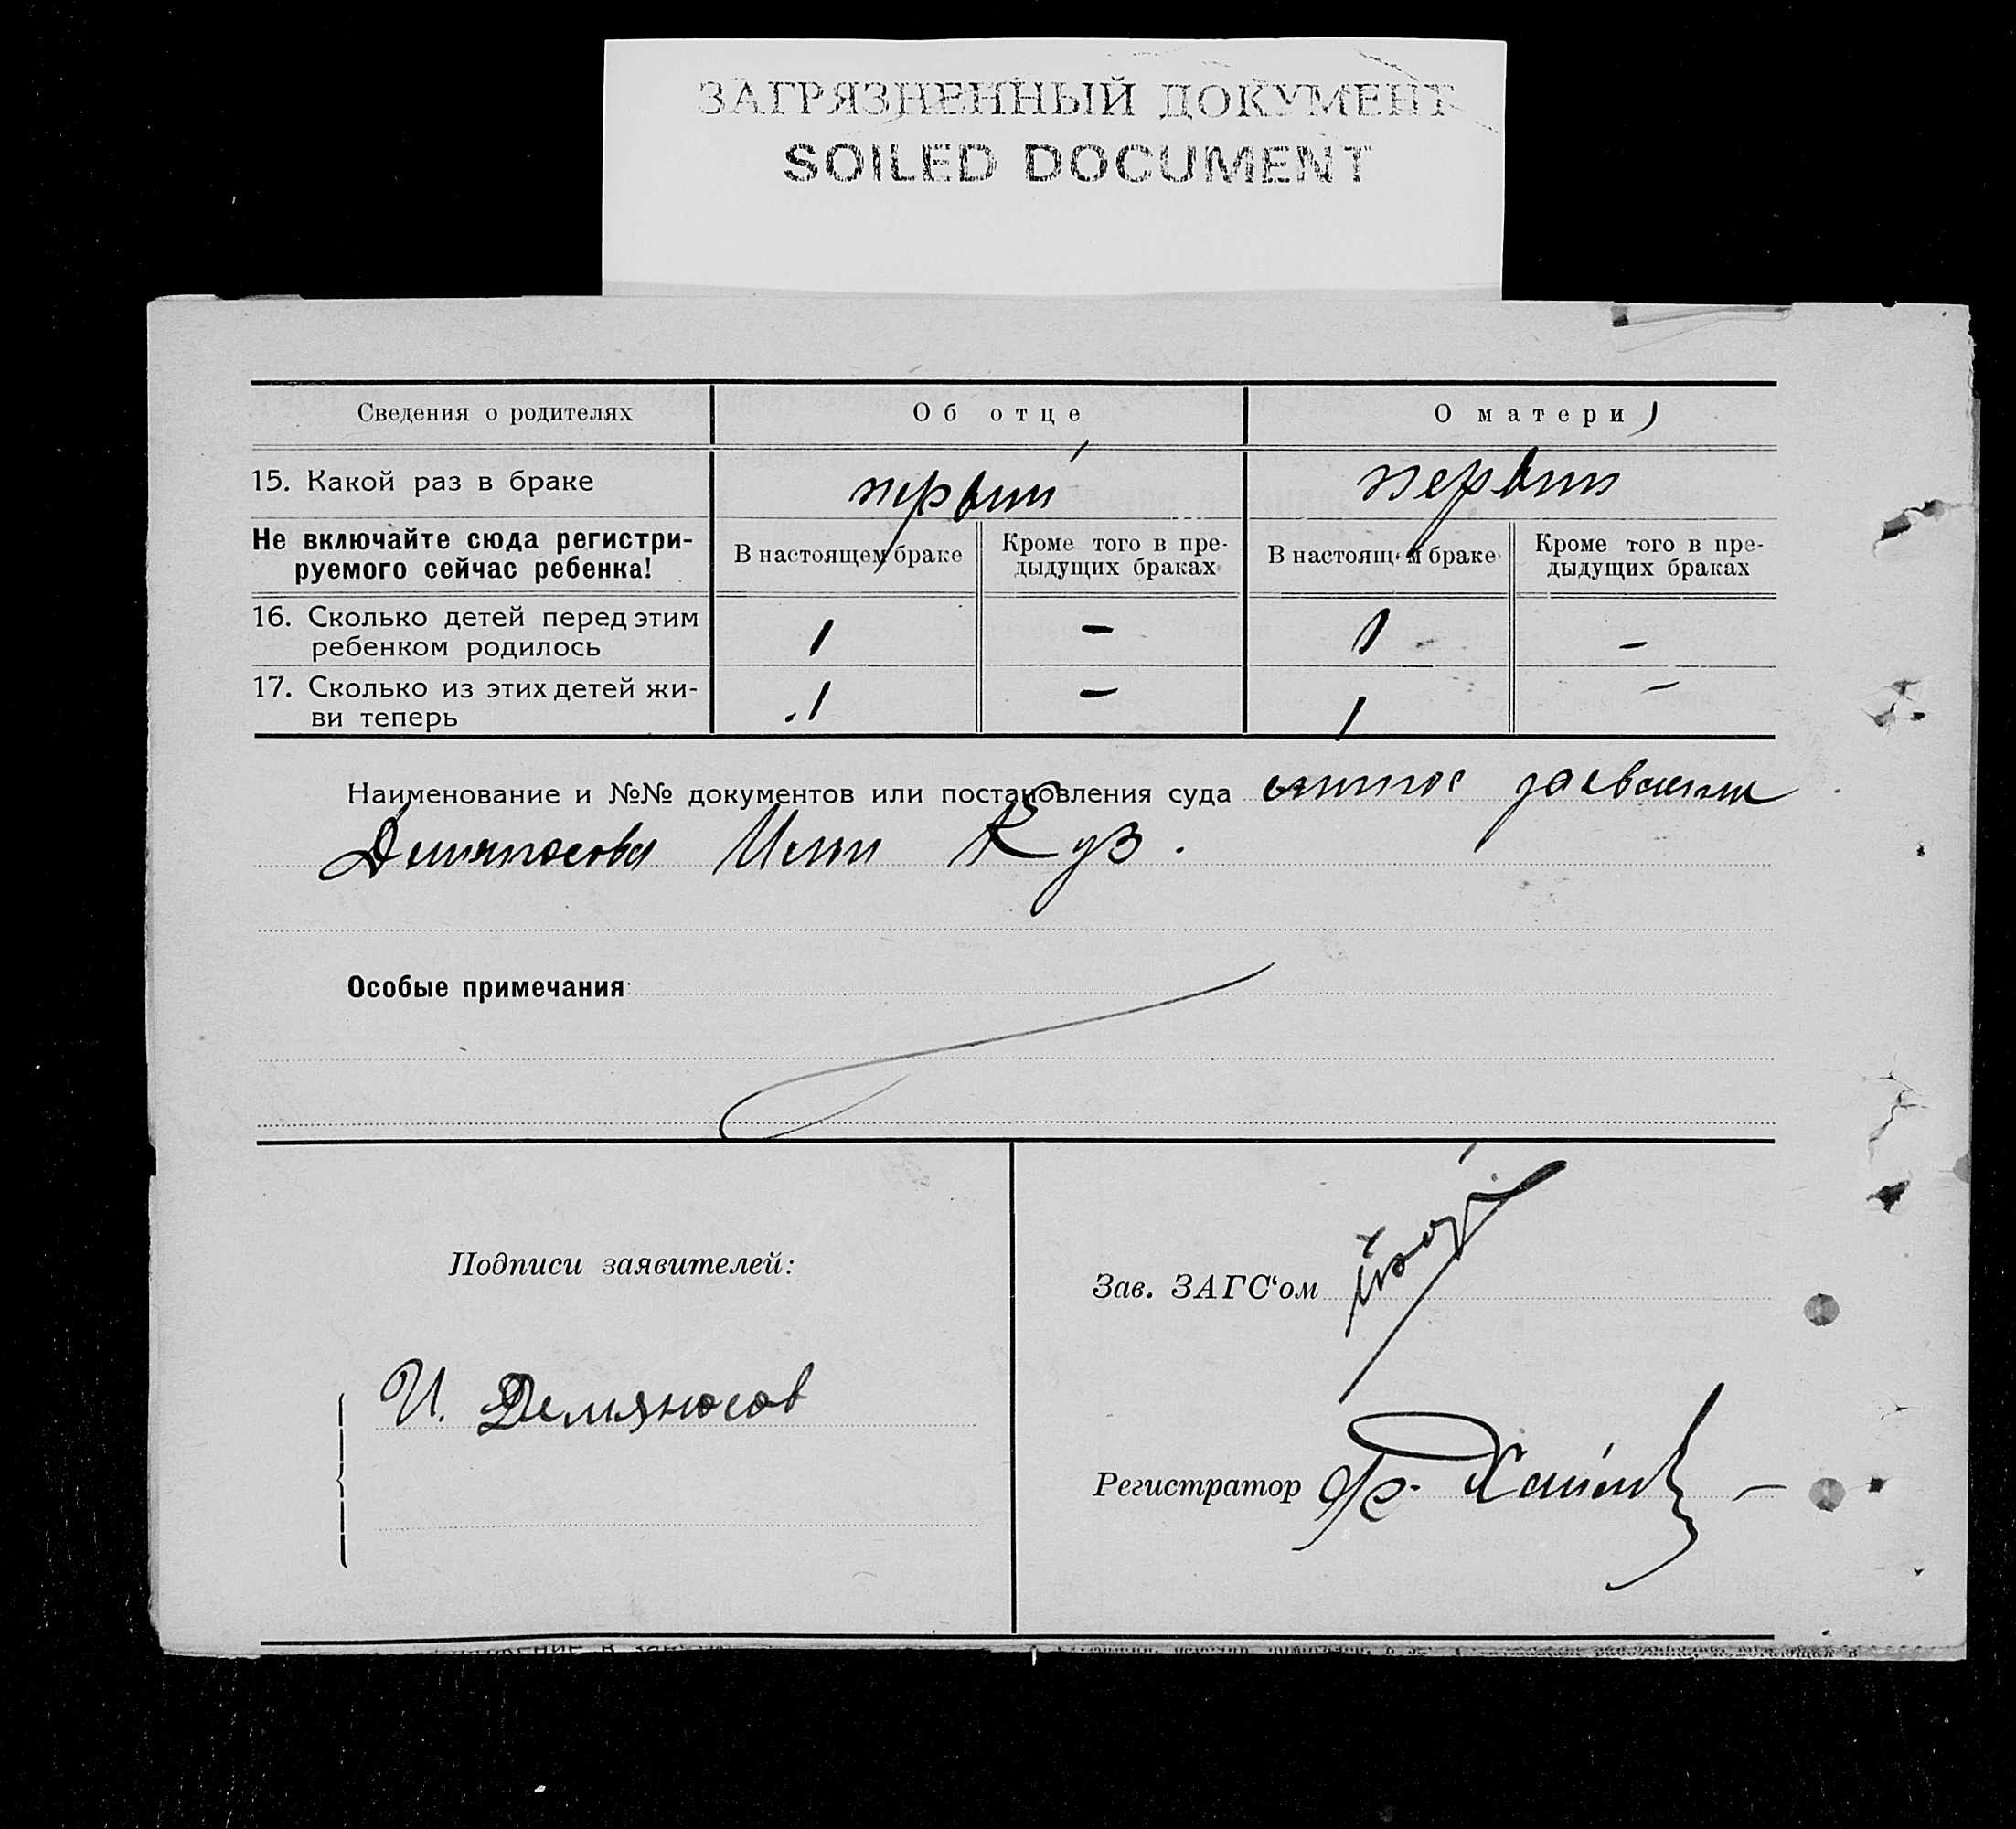 ЗАГРЯЗНЕННЫЙ ДОКУМЕНТ
SOILED DOCUMENT
Сведения о родителях
Об отце
О матери
15. Какой раз в браке
первый
первый
Не включайте сюда регистри-
руемого сейчас ребенка!
В настоящем браке
Кроме того в пре-
дыдущих браках
В настоящем браке
Кроме того в пре-
дыдущих браках
16. Сколько детей перед этим
ребенком родилось
1
-
1
-
17. Сколько из этих детей жи-
ви теперь
1
-
1
-
Наименование и №№ документов или постановления суда
Демяносова Куз.
Особые примечания:
Подписи заявителей:
И. Демяносов
Зав. ЗАГС'ом
Регистратор